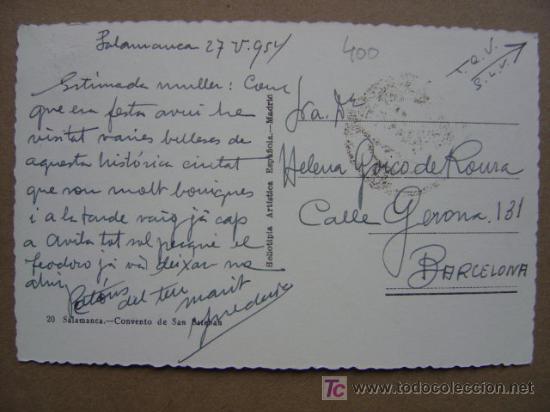 Salamanca 27 V. 954
400
T.Q.V.
B.L.V.
Estimada muller: Com
que era festa avui he
visitat varies belleses de
aquesta històrica ciutat
que son molt boniques
i a la tarde vaig ja cap
a Avila tot sol perquè el
Teodoro ja va deixar-me
ahir
Petóns del teu marit
Heliotipia Artística Española.—Madrid
Sra. Dª
Helena Gorco de Roura
Calle Gerona. 131
BARCELONA
20 Salamanca.—Convento de San Esteban
TC www.todocoleccion.net